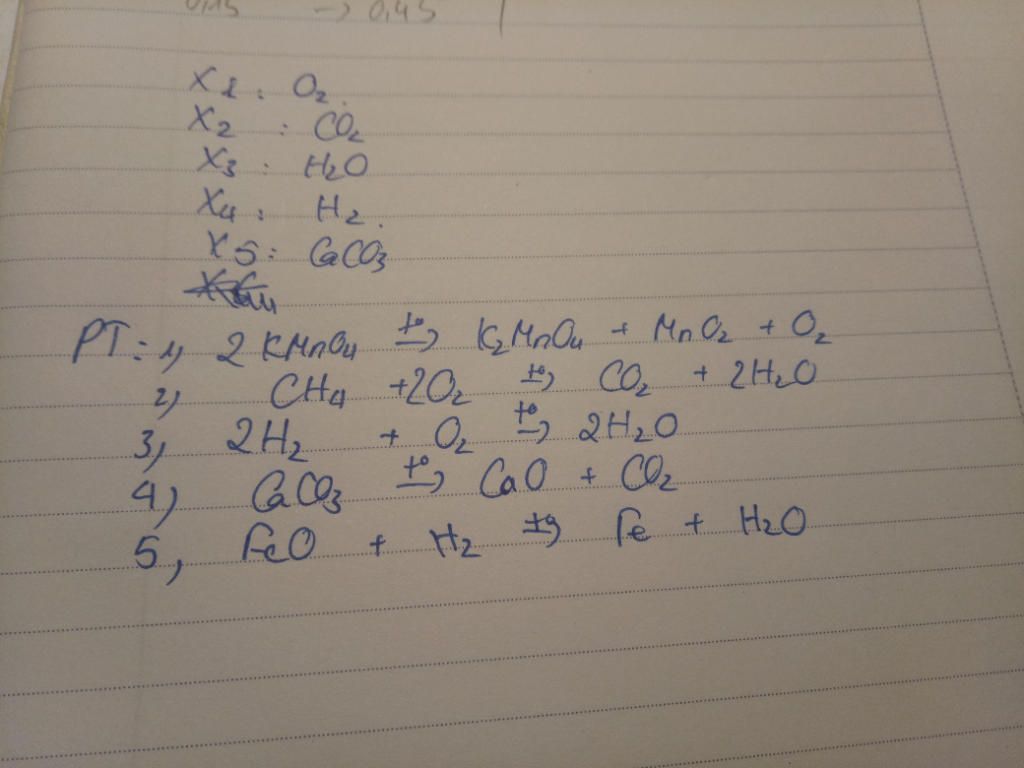 0,15 → 0,45
X1 : O2.
X2 : CO2
X3 : H2O
X4 : H2.
X5 : CaCO3
PT: 1, 2KMnO4 t° → K2MnO4 + MnO2 + O2
2, CH4 + 2O2 t° → CO2 + 2H2O
3, 2H2 + O2 t° → 2H2O
4, CaCO3 t° → CaO + CO2
5, FeO + H2 t° → Fe + H2O